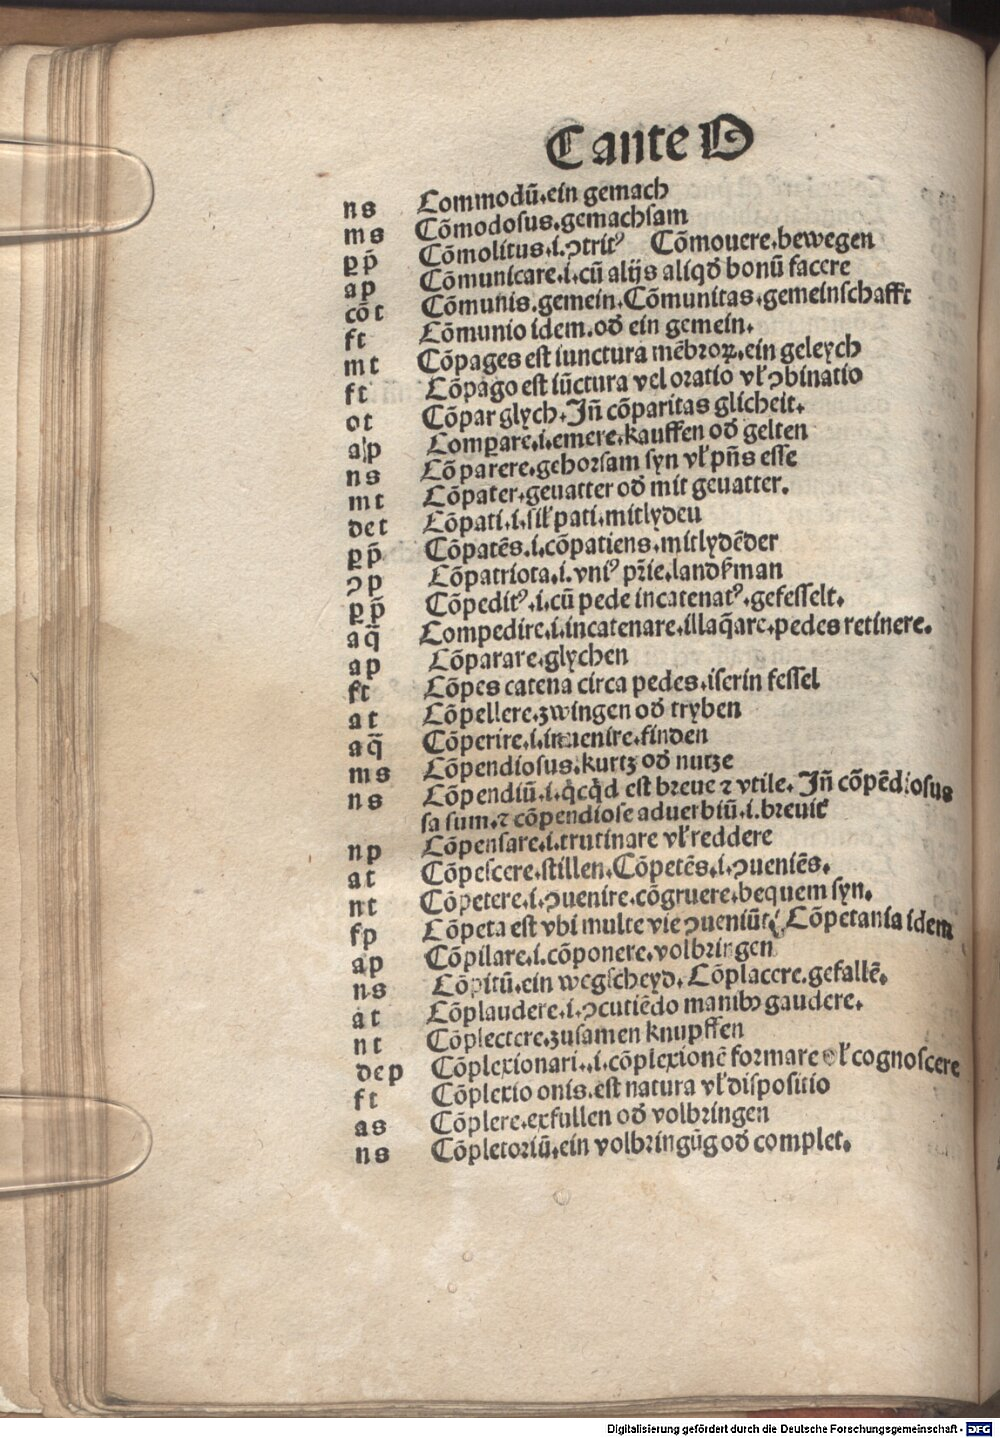 C ante O
ns Commodū.ein gemach
ms Cōmodosus.gemachsam
ꝑp̄ Cōmolitus.i.ↄtritꝰ Cōmouere.bewegen
ap Cōmunicare.i.cū alijs aliqđ bonū facere
cōt Cōmunis.gemein.Cōmunitas.gemeinschafft
ft Cōmunio idem.ođ ein gemein.
mt Cōpages est iunctura mēbroꝝ.ein geleych
ft Cōpago est iūctura vel oratio vł ↄbinatio
ot Cōpar glych.Jn̄ cōparitas glicheit.
ap Comꝑare.i.emere.kauffen ođ gelten
ns Cōparere.gehorsam syn vł pn̄s esse
mt Cōpater.geuatter ođ mit geuatter.
det Cōpati.i.sił pati.mitlydeu
ꝑp̄ Cōpatēs.i.cōpatiens.mitlydēder
ↄp Cōpatriota.i.vniꝰ pr̄ie.landſman
ꝑp̄ Cōpeditꝰ.i.cū pede incatenatꝰ.gefesselt.
aq̄ Compedire.i.incatenare.illaq̄are.pedes retinere.
ap Cōparare.glychen
ft Cōpes catena circa pedes.iserin fessel
at Cōpellere.zwingen ođ tryben
aq̄ Cōperire.i.inuenire.finden
ms Cōpendiosus.kurtz ođ nutze
ns Cōpendiū.i.qͥcqͥd est breue ⁊ vtile.Jn̄ cōpēdiosus
sa sum.⁊ cōpendiose aduerbiū.i.breuit᷑
np Cōpensare.i.trutinare vł reddere
at Cōpescere.stillen.Cōpetēs.i.ↄueniēs.
nt Cōpetere.i.ↄuenire.cōgruere.bequem syn.
fp Cōpeta est vbi multe vie ↄueniūt. Cōpetania idem
ap Cōpilare.i.cōponere.volbringen
ns Cōpitū.ein wegscheyd.Cōplacere.gefallē.
at Cōplaudere.i.ↄcutiēdo manibꝫ gaudere.
nt Cōplectere.zusamen knupffen
dep Cōplexionari.i.cōplexionē formare vł cognoscere
ft Cōplexio onis.est natura vł dispositio
as Cōplere.erfullen ođ volbringen
ns Cōpletoriū.ein volbringūg ođ complet.
Digitalisierung gefördert durch die Deutsche Forschungsgemeinschaft - DFG